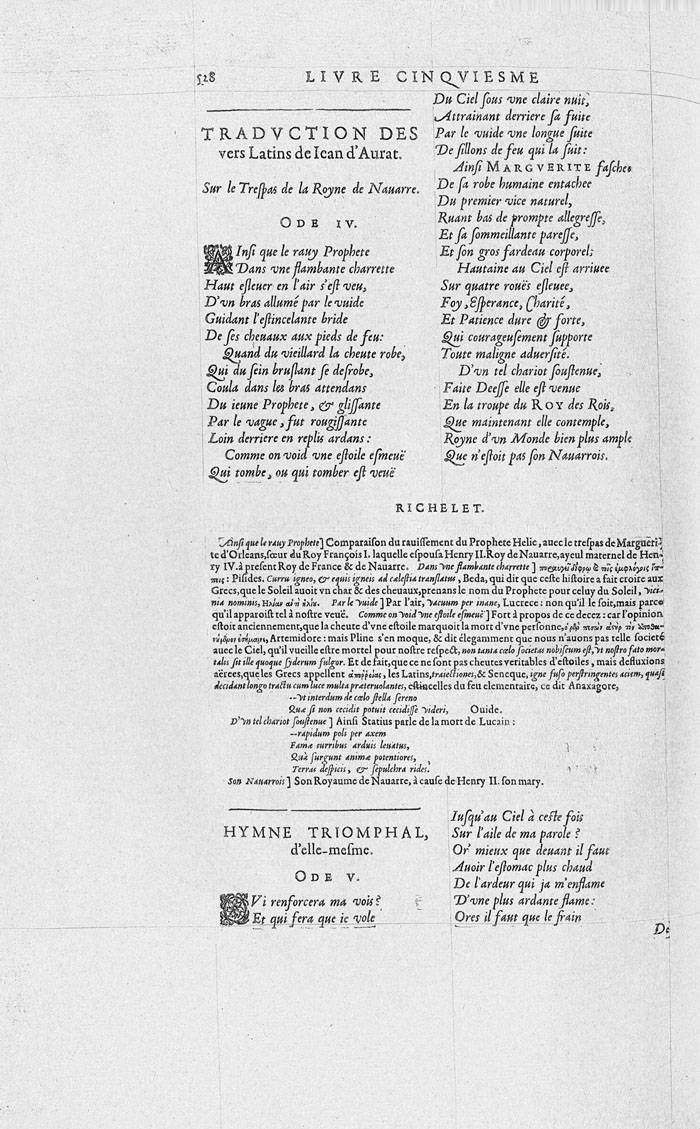 528 LIVRE CINQVIESME
TRADVCTION DES
vers Latins de Iean d'Aurat.
Sur le Treſpas de la Royne de Nauarre.
ODE IV.
AInſi que le rauy Prophete
Dans vne flambante charrette
Haut eſleuer en l'air s'eſt veu,
D'vn bras allumé par le vuide
Guidant l'eſtincelante bride
De ſes cheuaux aux pieds de feu:
Quand du vieillard la cheute robe,
Qui du ſein bruſlant ſe deſrobe,
Coula dans les bras attendans
Du ieune Prophete, & gliſſante
Par le vague, fut rougiſſante
Loin derriere en replis ardans:
Comme on void vne eſtoile eſmeuë
Qui tombe, ou qui tomber eſt veuë
Du Ciel ſous vne claire nuit,
Attrainant derriere ſa fuite
Par le vuide vne longue ſuite
De ſillons de feu qui la ſuit:
Ainſi MARGVERITE faſchee
De ſa robe humaine entachee
Du premier vice naturel,
Ruant bas de prompte allegreſſe,
Et ſa ſommeillante pareſſe,
Et ſon gros fardeau corporel;
Hautaine au Ciel eſt arriuee
Sur quatre rouës eſleuee,
Foy, Eſperance, Charité,
Et Patience dure & forte,
Qui courageuſement ſupporte
Toute maligne aduerſité.
D'vn tel chariot ſouſtenue,
Faite Deeſſe elle eſt venue
En la troupe du ROY des Rois,
Que maintenant elle contemple,
Royne d'vn Monde bien plus ample
Que n'eſtoit pas ſon Nauarrois.
RICHELET.
Ainſi que le rauy Prophete] Comparaiſon du rauiſſement du Prophete Helie, auec le treſpas de Margueri-
te d'Orleans, ſœur du Roy François I. laquelle eſpouſa Henry II. Roy de Nauarre, ayeul maternel de Hen-
ry IV. à preſent Roy de France & de Nauarre. Dans vne flambante charrette]
: Piſides. Curru igneo, & equis igneis ad cæleſtia tranſlatus, Beda, qui dit que ceſte hiſtoire a fait croire aux
Grecs, que le Soleil auoit vn char & des cheuaux, prenans le nom du Prophete pour celuy du Soleil, vici-
nia nominis, Par le vuide] Par l'air, vacuum per inane, Lucrece: non qu'il le ſoit, mais parce
qu'il apparoiſt tel à noſtre veuë. Comme on void vne eſtoile eſmeuë] Fort à propos de ce decez: car l'opinion
eſtoit anciennement, que la cheute d'vne eſtoile marquoit la mort d'vne perſonne,
Artemidore: mais Pline s'en moque, & dit élegamment que nous n'auons pas telle ſocieté
auec le Ciel, qu'il vueille eſtre mortel pour noſtre reſpect, non tanta cælo ſocietas nobiſcum eſt, vt noſtro fato mor-
talis ſit ille quoque ſyderum fulgor. Et de fait, que ce ne ſont pas cheutes veritables d'eſtoiles, mais defluxions
aërees, que les Grecs appellent les Latins, traiectiones, & Seneque, igne fuſo perſtringentes aciem, quaſi
decidant longo tractu cum luce multa præteruolantes, eſtincelles du feu elementaire, ce dit Anaxagore,
--vt interdum de cælo ſtella ſereno
Quæ ſi non cecidit potuit cecidiſſe videri, Ouide.
D'vn tel chariot ſouſtenue] Ainſi Statius parle de la mort de Lucain:
--rapidum poli per axem
Famæ curribus arduis leuatus,
Quà ſurgunt animæ potentiores,
Terras deſpicis, & ſepulchra rides.
Son Nauarrois] Son Royaume de Nauarre, à cauſe de Henry II. ſon mary.
HYMNE TRIOMPHAL,
d'elle-meſme.
ODE V.
QVi renforcera ma vois?
Et qui fera que ie vole
Iuſqu'au Ciel à ceſte fois
Sur l'aile de ma parole?
Or' mieux que deuant il faut
Auoir l'eſtomac plus chaud
De l'ardeur qui ja m'enflame
D'vne plus ardante flame:
Ores il faut que le frain
De